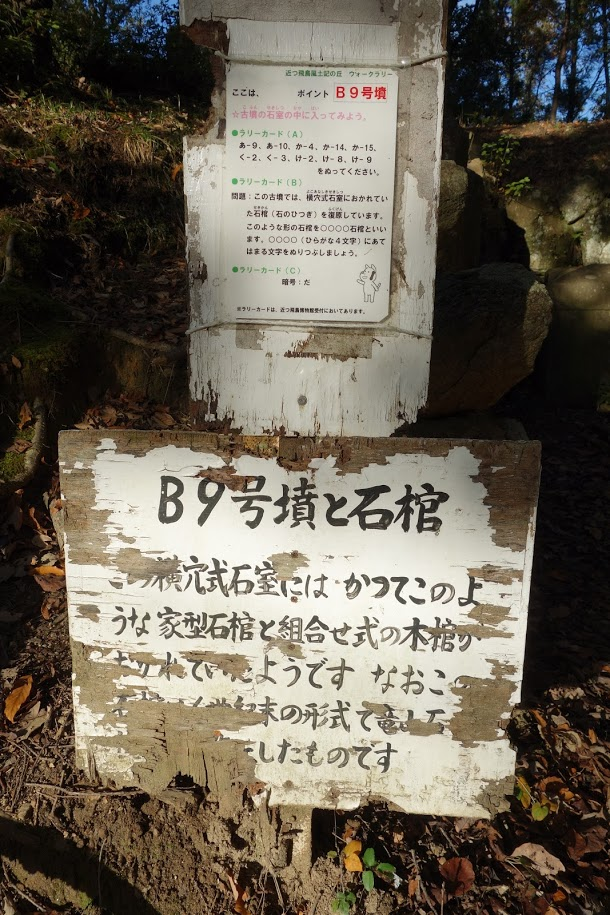 近つ飛鳥風土記の丘　ウォークラリー
ここは、　ポイント　B9号墳
☆古墳の石室の中に入ってみよう。
●ラリーカード（A）
あ-9、あ-10、か-4、か-14、か-15、
く-2、く-3、け-2、け-8、け-9
をぬってください。
●ラリーカード（B）
問題：この古墳では、横穴式石室におかれてい
た石棺（石のひつぎ）を復原しています。
このような形の石棺を○○○○石棺といい
ます。○○○○（ひらがな4文字）にあて
はまる文字をぬりつぶしましょう。
●ラリーカード（C）
暗号：だ
※ラリーカードは、近つ飛鳥博物館受付においてあります。
B9号墳と石棺
横穴式石室には かつてこのよ
うな家型石棺と組合せ式の木棺が
れていたようです なおこ
末の形式で竜山石
したものです